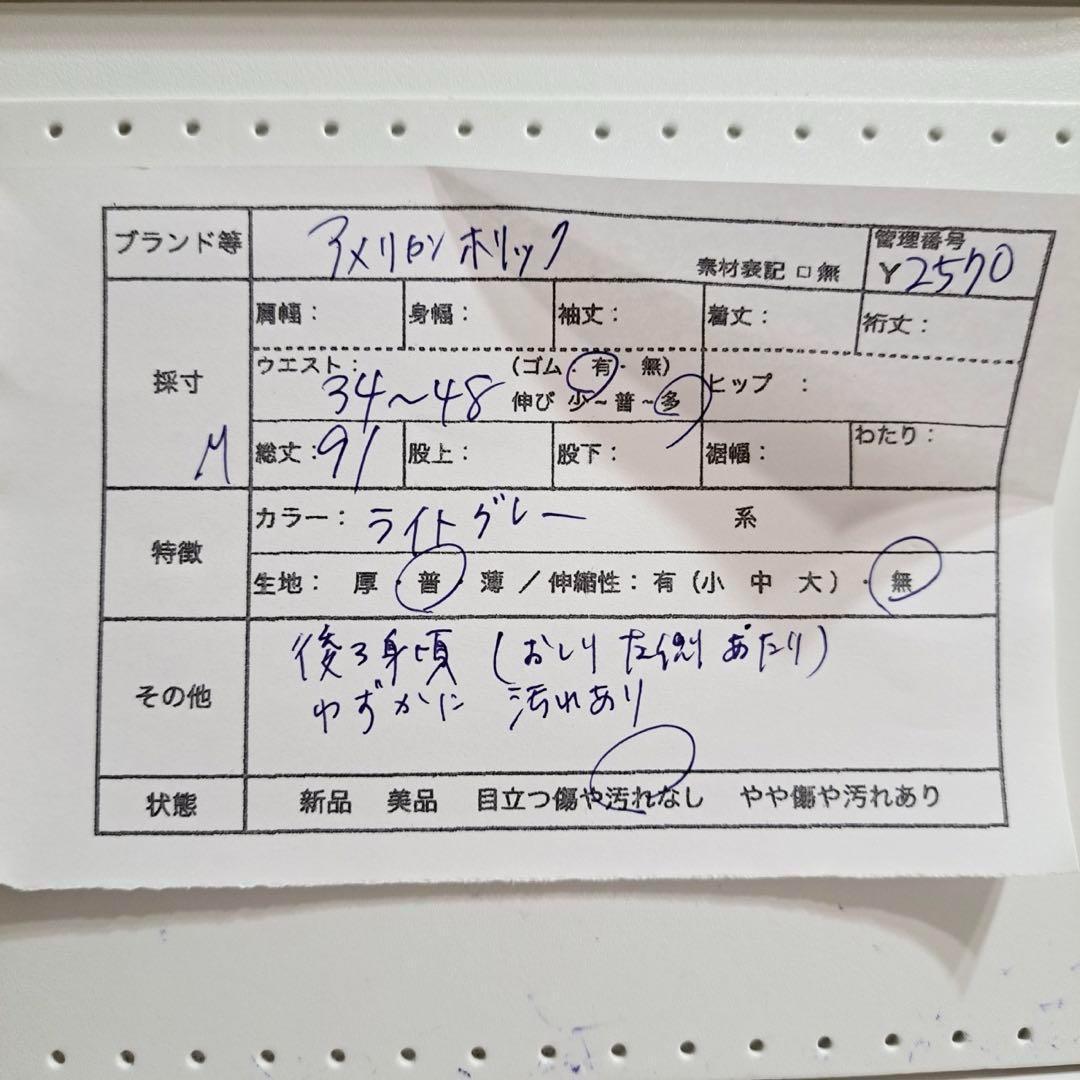 ブランド等 アメリカンホリック 素材表記 □ 無 管理番号 Y2570
採寸 M
肩幅： 身幅： 袖丈： 着丈： 裄丈：
ウエスト： 34～48 （ゴム ・ 有 ・ 無） ヒップ ：
伸び 少～普～多
総丈：91 股上： 股下： 裾幅： わたり：
特徴
カラー： ライトグレー 系
生地： 厚 ・ 普 ・ 薄 ／ 伸縮性：有（小 中 大） ・ 無
その他
後ろ身頃（おしり左側あたり）
わずかに 汚れあり
状態 新品 美品 目立つ傷や汚れなし やや傷や汚れあり